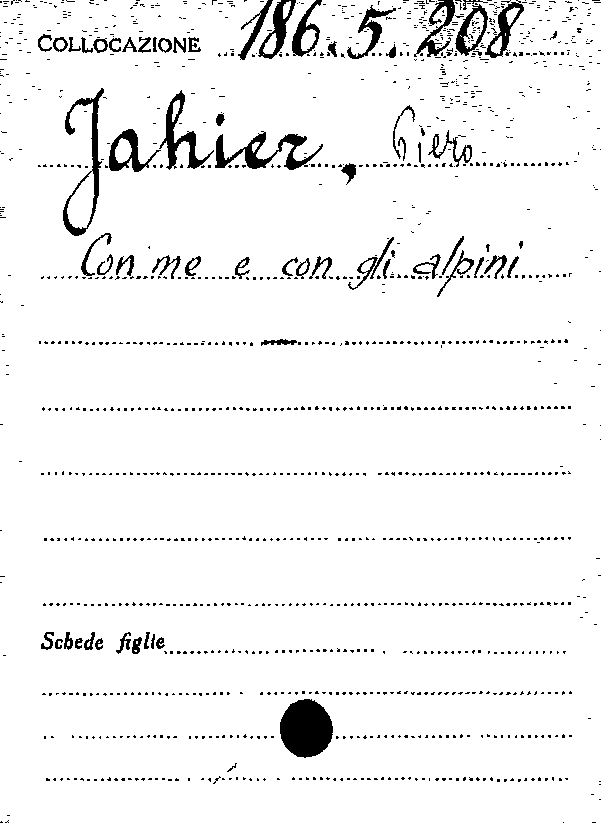 COLLOCAZIONE 186.5.208
Jahier, Piero
Con me e con gli alpini
Schede figlie